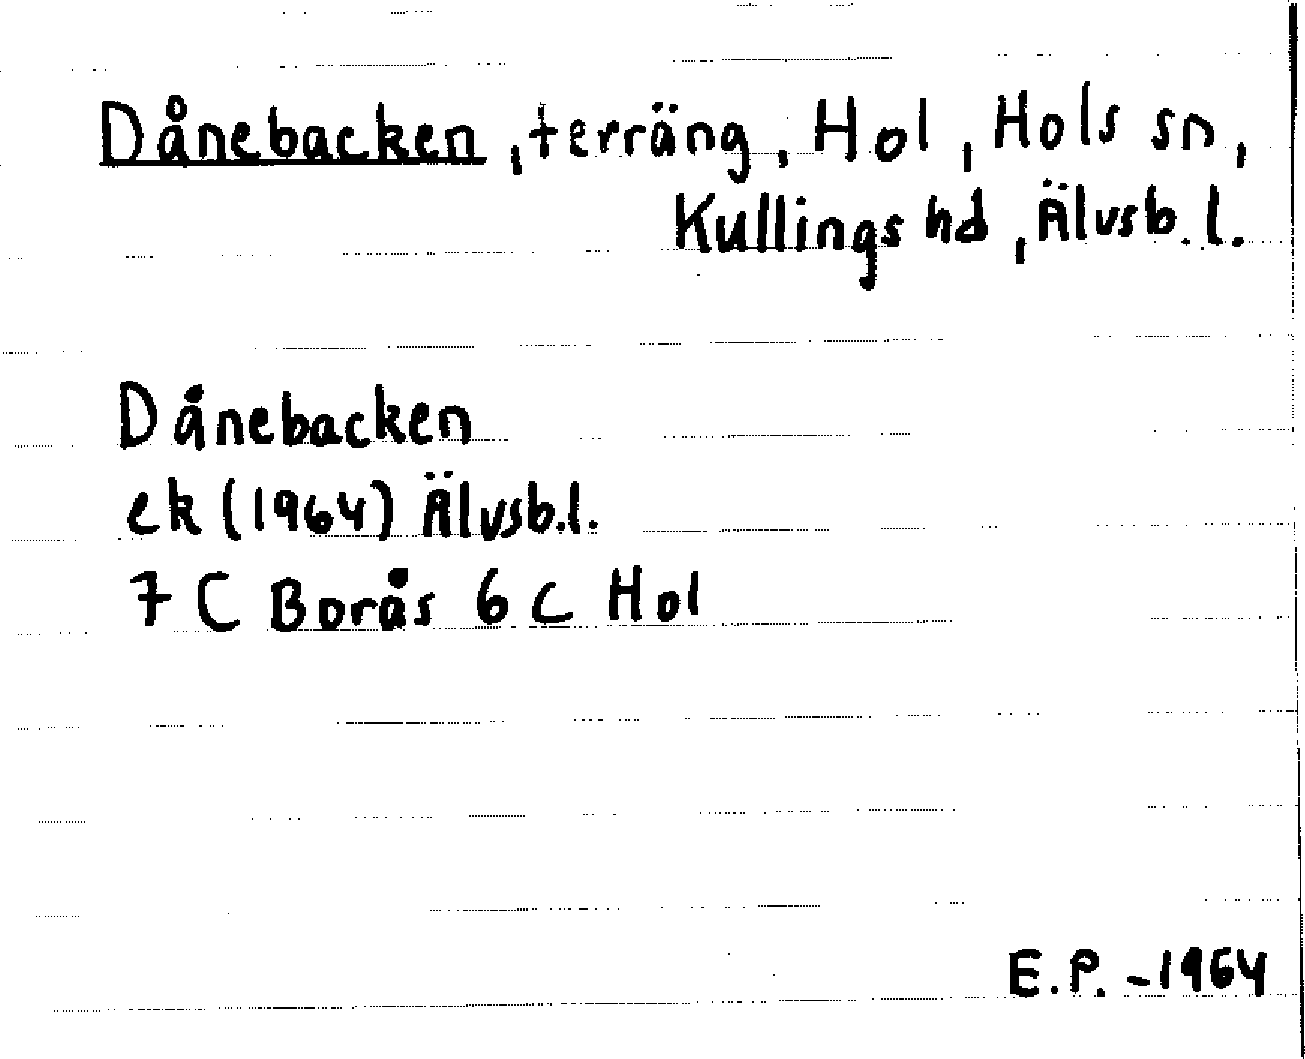 Dånebacken, terräng, Hol, Hols sn,
Kullings hd, Älvsb. l.
Dånebacken
ek (1964) Älvsb.l.
7 C Borås 6 c Hol
E.P. -1964